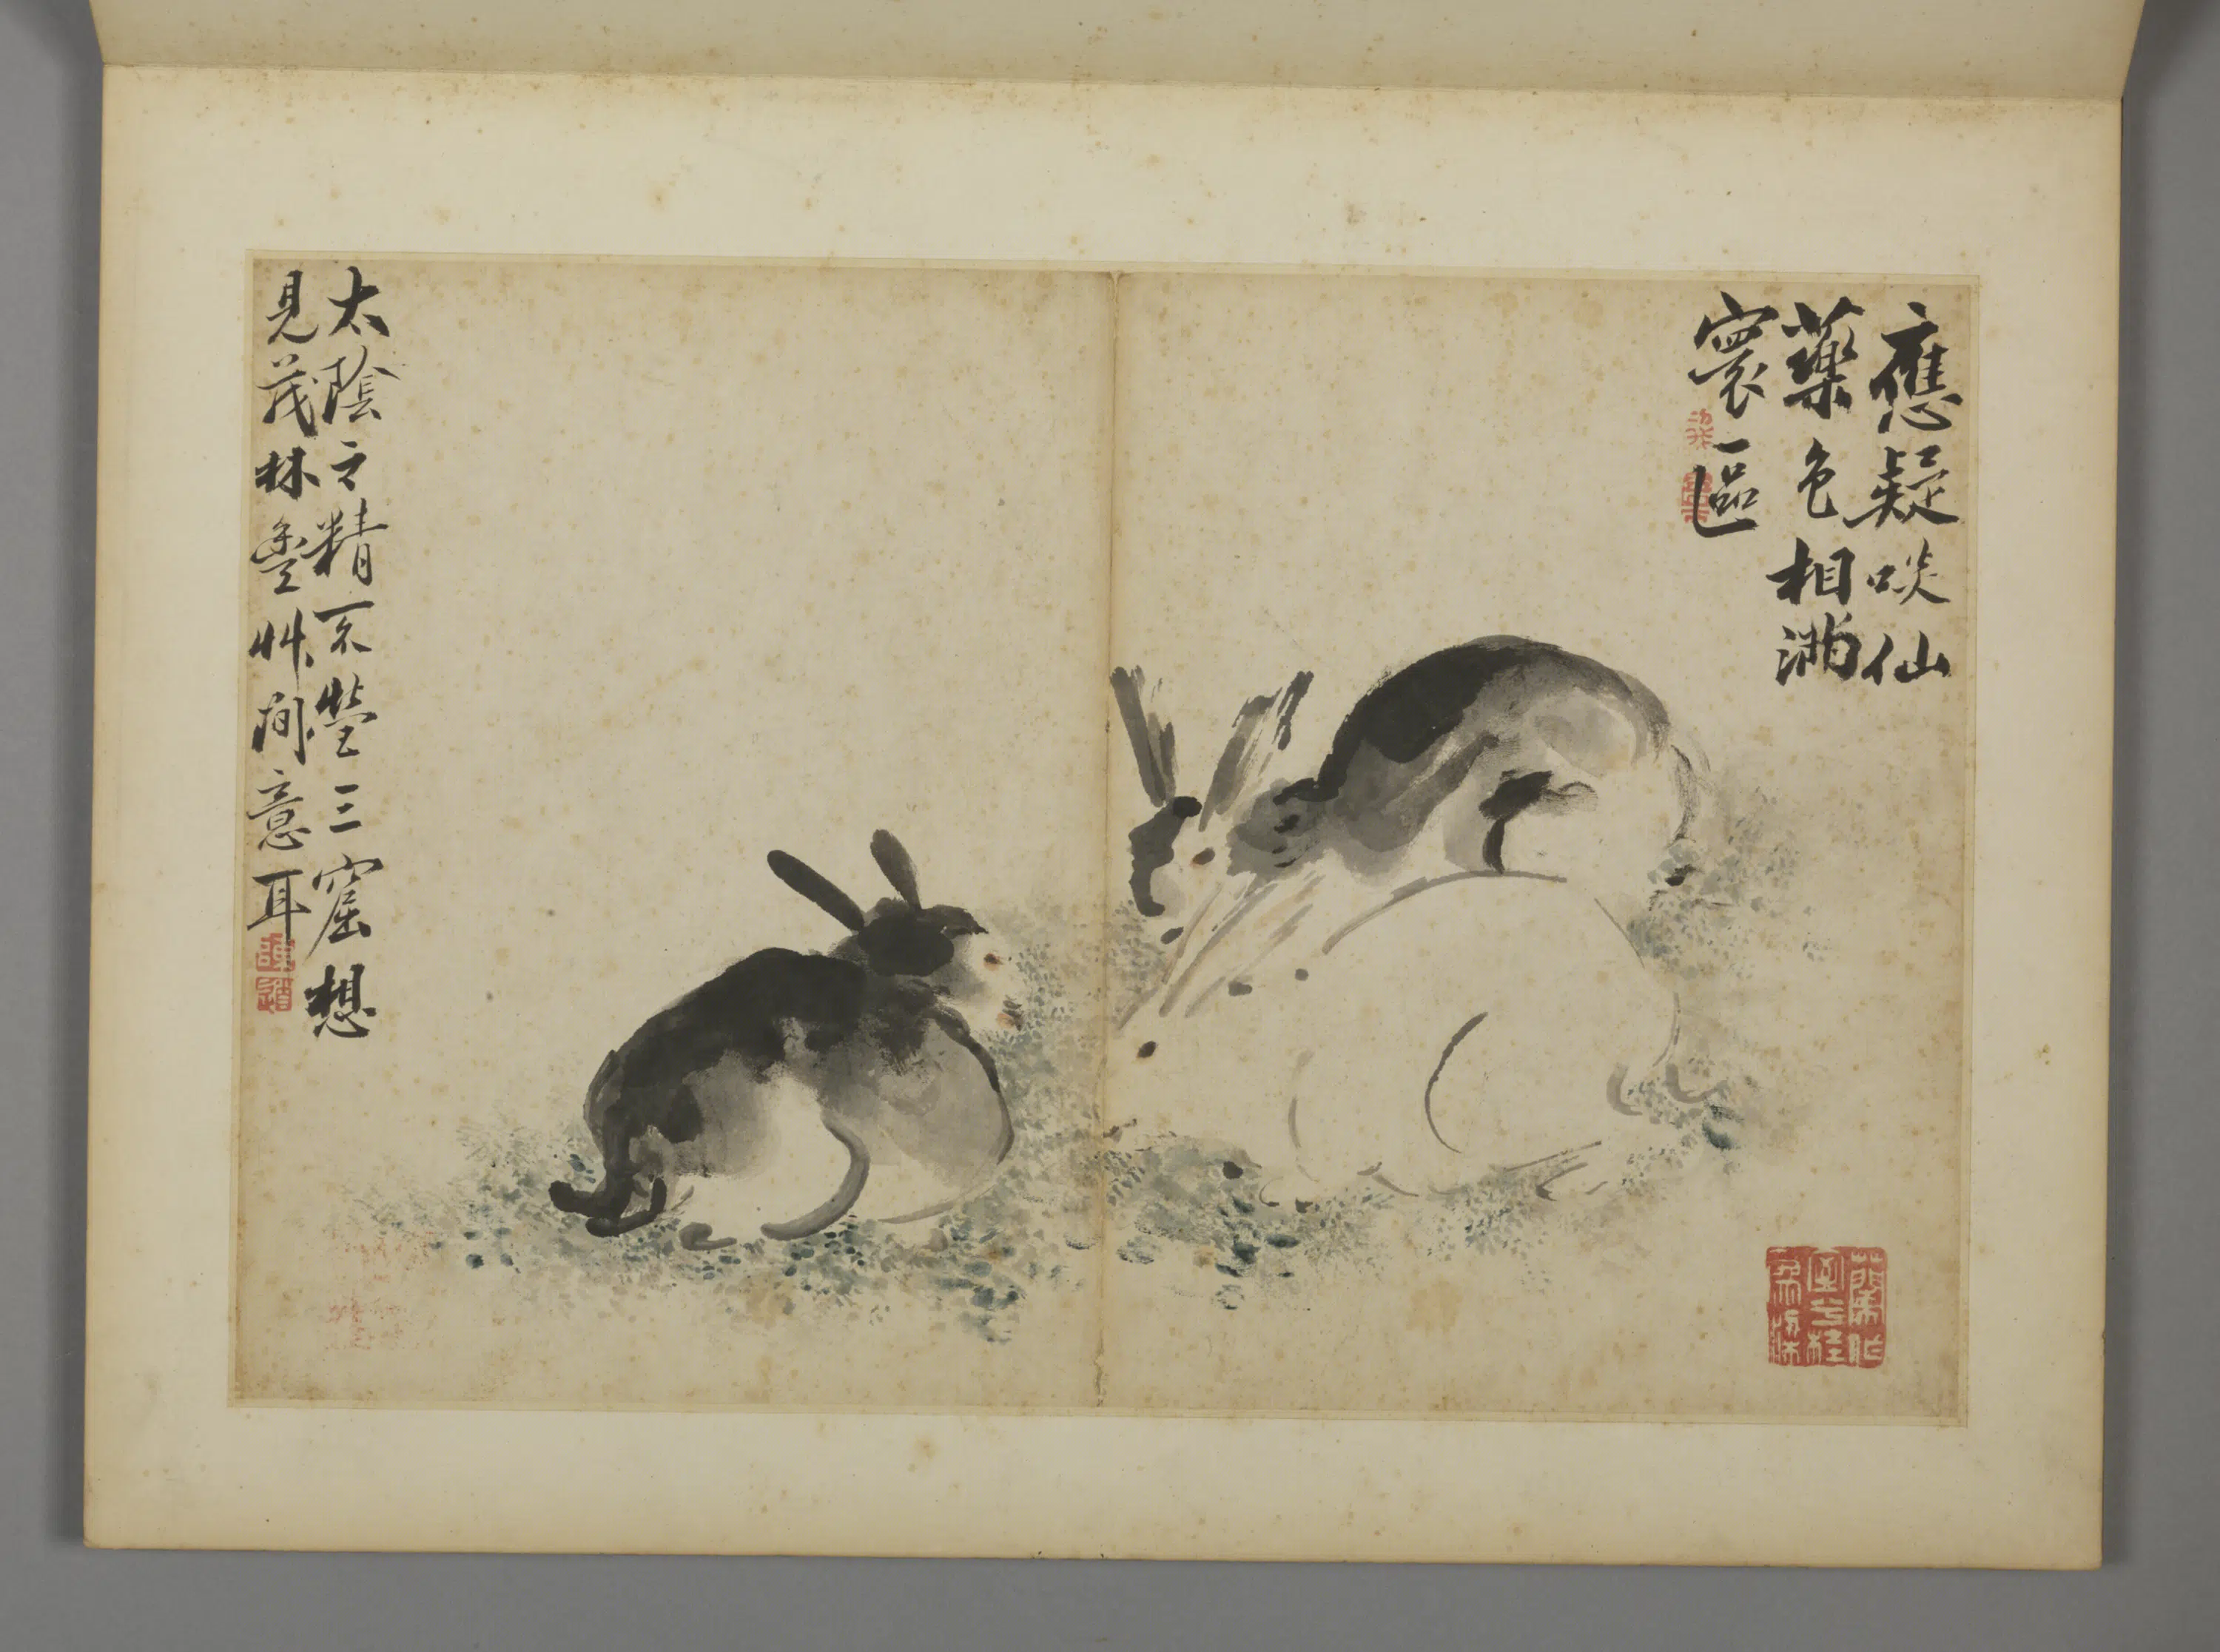 應疑啖仙
藥色相滿
寰區
太陰之精不營三窟想
見茂林豐艸間意耳